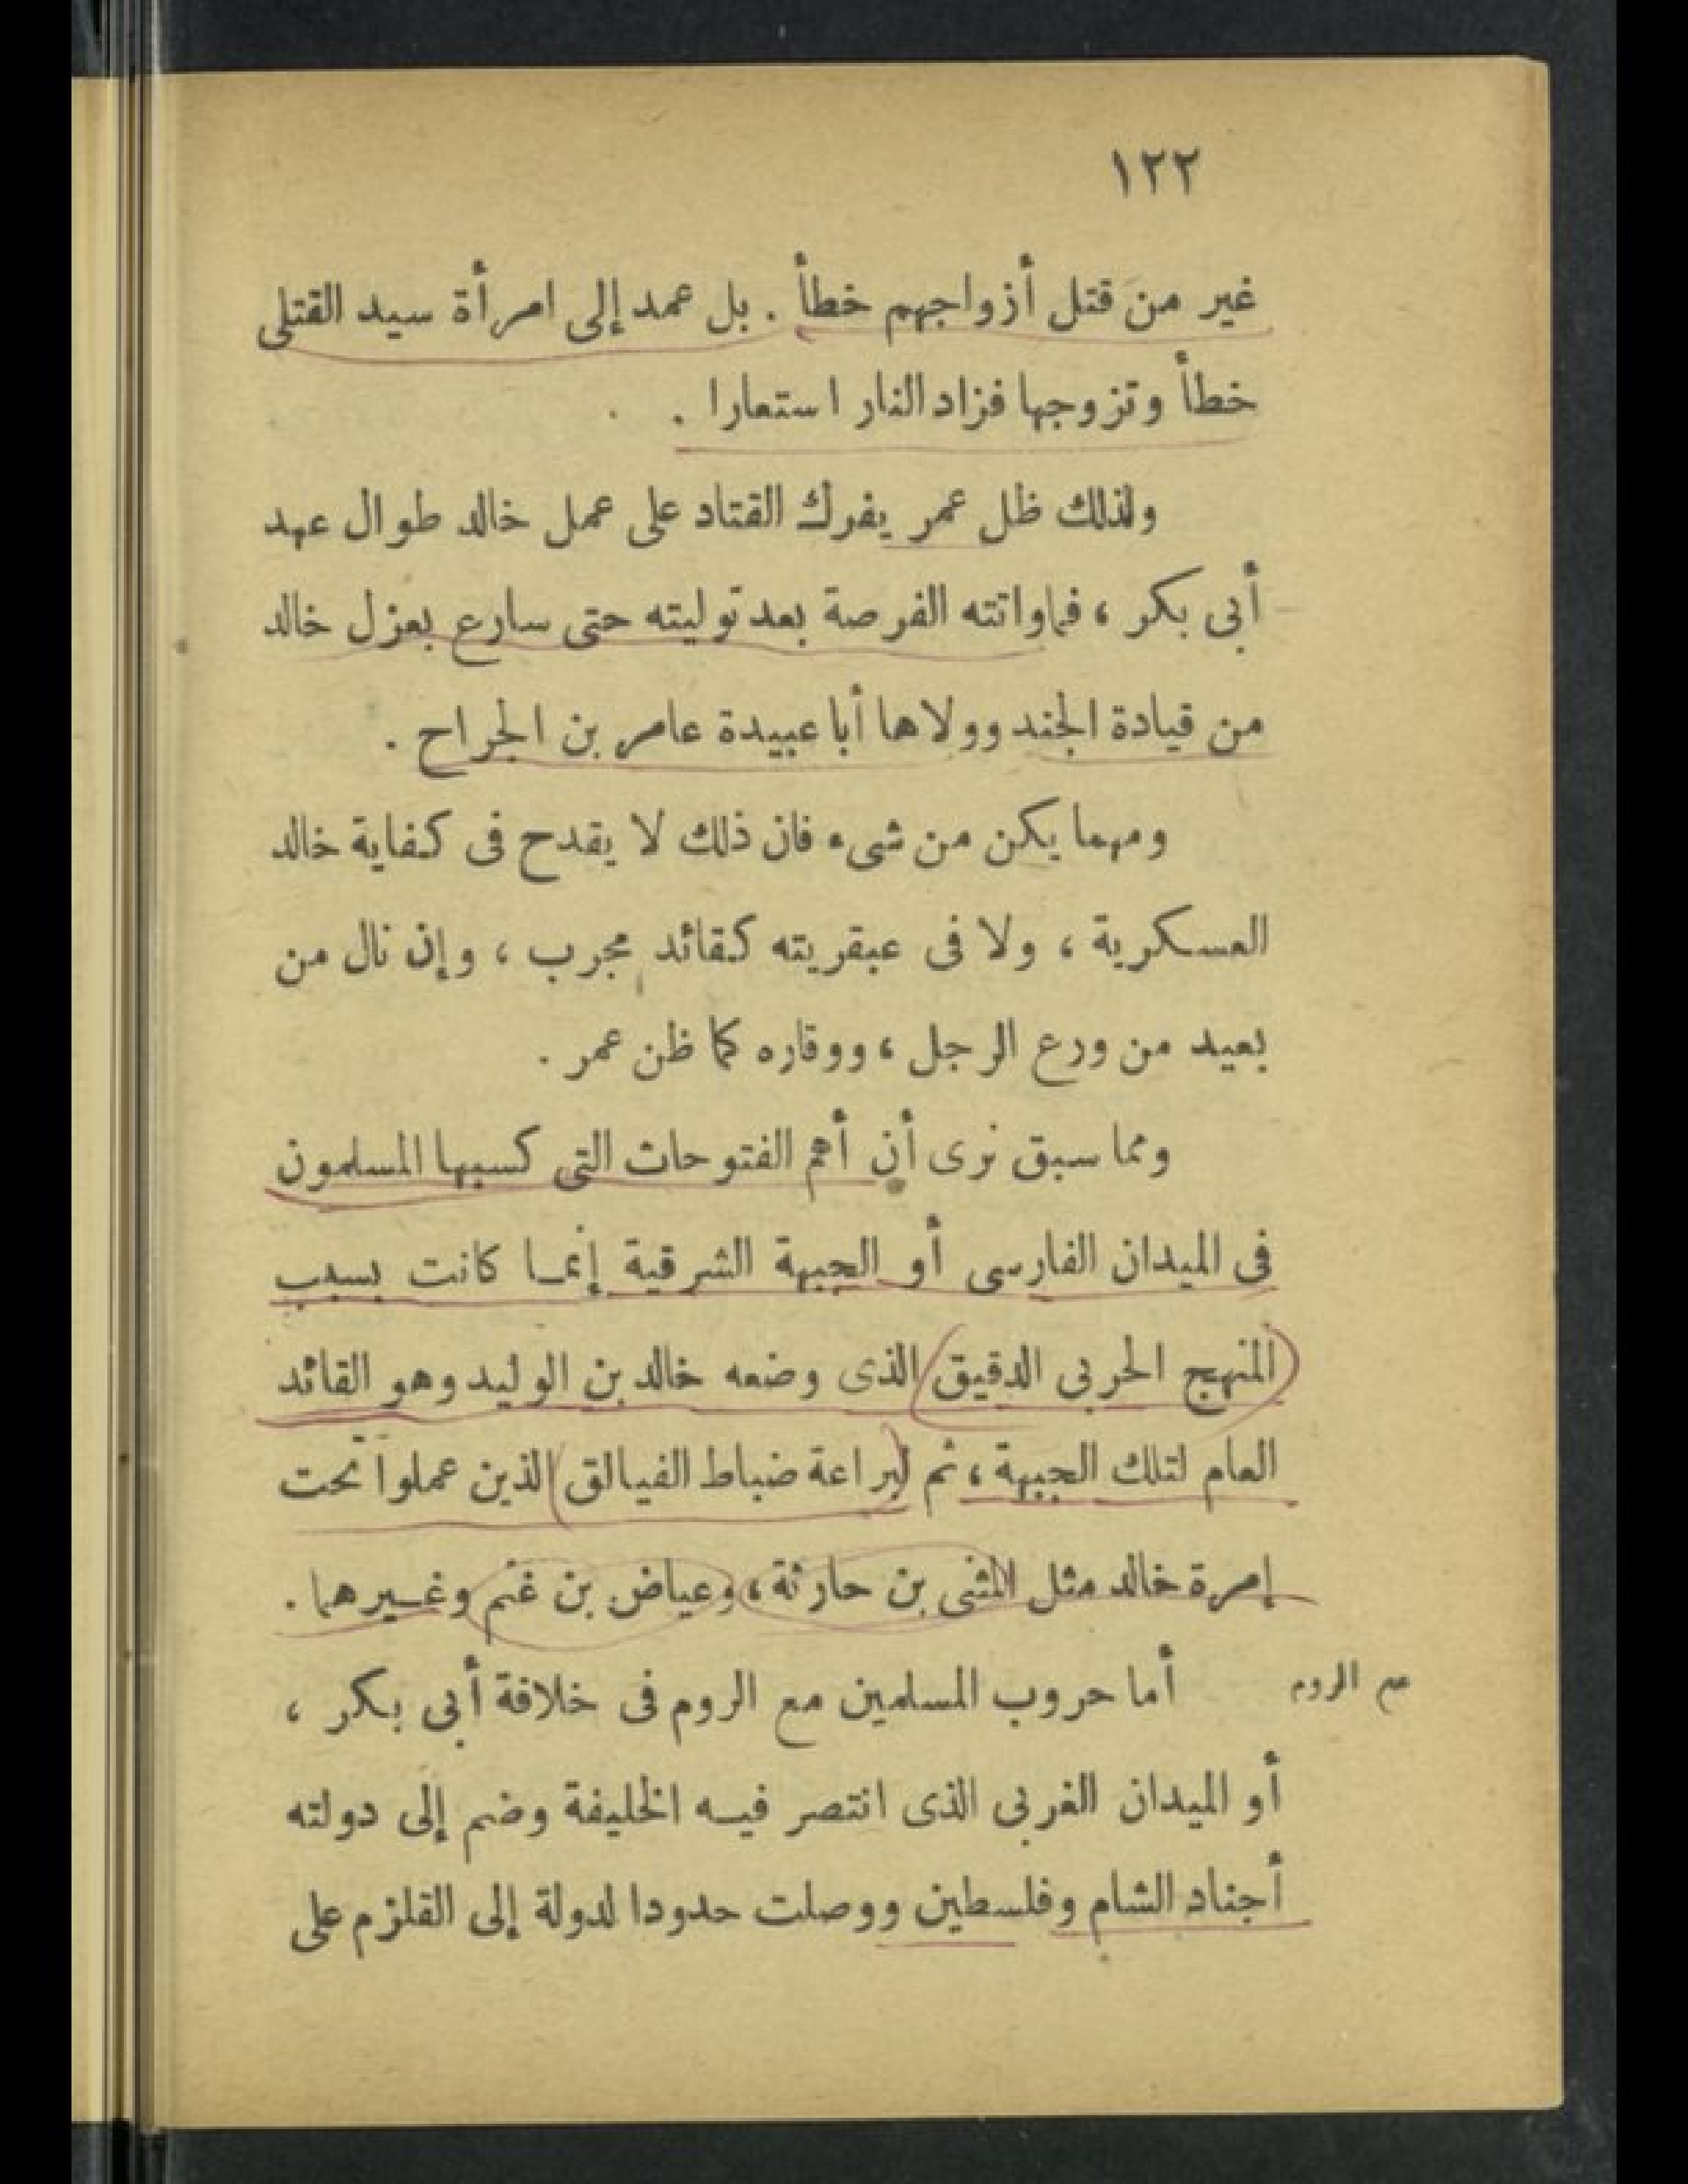 ١٢٢
غير من قتل أزواجهم خطأ . بل عمد إلى امرأة سيد القتلى
خطأ وتزوجها فزاد النار استعارا .
ولذلك ظل عمر يفرك القتاد على عمل خالد طوال عهد
أبى بكر ، فماواتته الفرصة بعد توليته حتى سارع بعزل خالد
من قيادة الجند وولاها أبا عبيدة عامر بن الجراح .
ومهما يكن من شىء فان ذلك لا يقدح فى كفاية خالد
العسكرية ، ولا فى عبقريته كقائد مجرب ، وإن نال من
بعيد من ورع الرجل ، ووقاره كما ظن عمر .
ومما سبق نرى أن أهم الفتوحات التى كسبها المسلمون
فى الميدان الفارسى أو الجبهة الشرقية إنما كانت بسبب
المنهج الحربى الدقيق الذى وضعه خالد بن الوليد وهو القائد
العام لتلك الجبهة ، ثم لبراعة ضباط الفيالق الذين عملوا تحت
إمرة خالد مثل المثنى بن حارثة ، وعياض بن غنم وغيرهما .
مع الروم
أما حروب المسلمين مع الروم فى خلافة أبى بكر ،
أو الميدان الغربى الذى انتصر فيه الخليفة وضم إلى دولته
أجناد الشام وفلسطين ووصلت حدودا لدولة إلى القلزم على